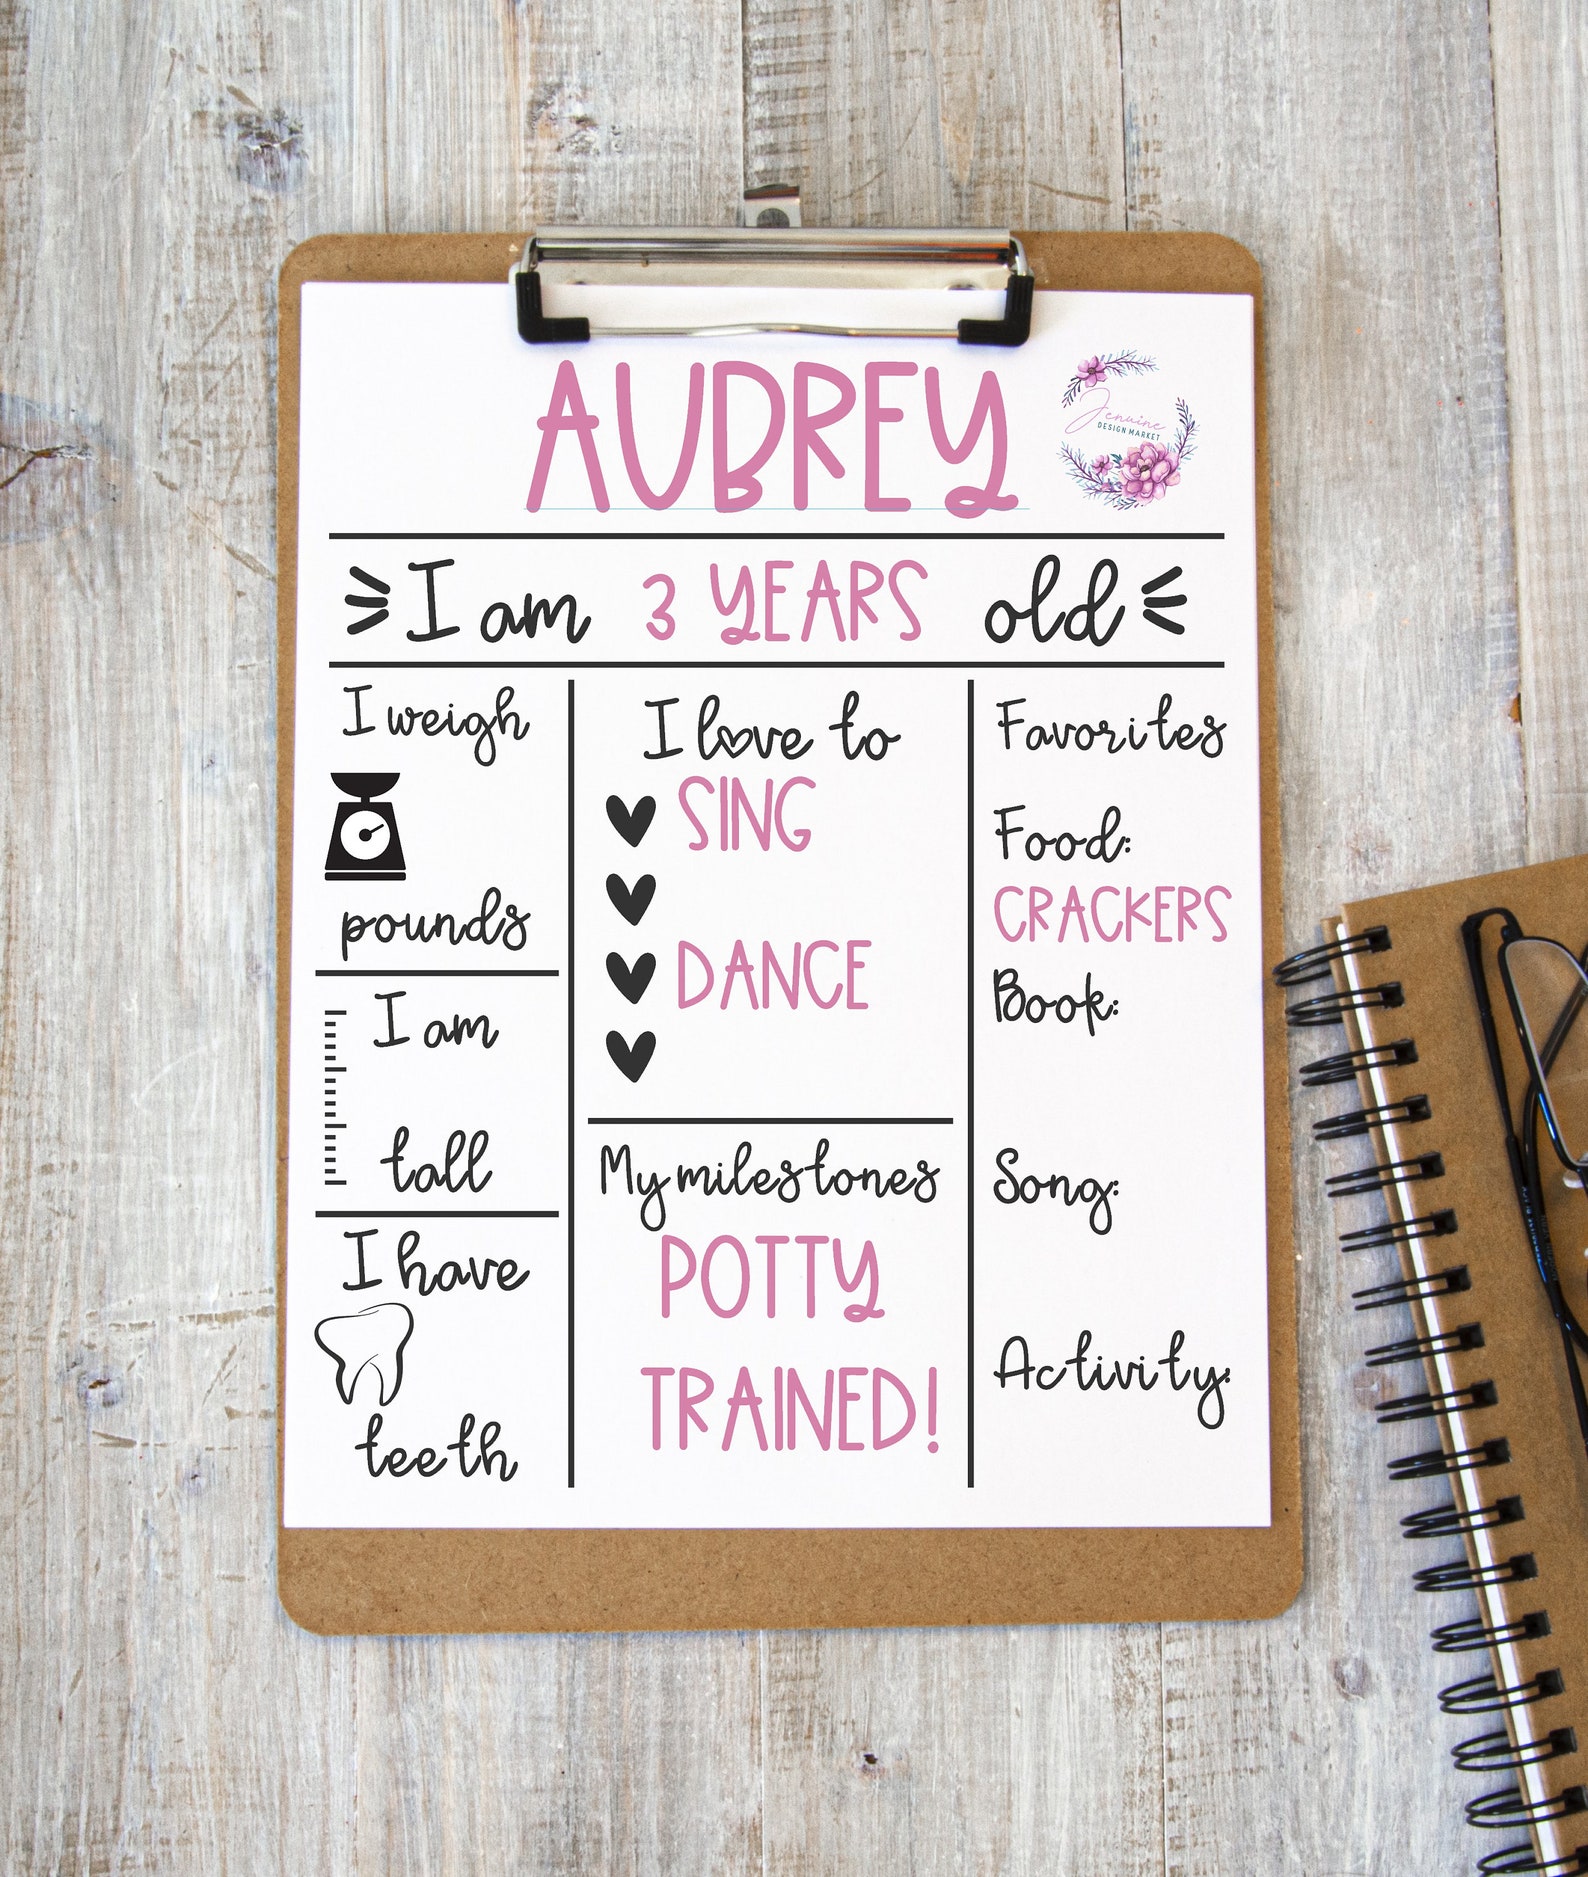 AUBREY
Jenuine
DESIGN MARKET
I am 3 YEARS old
I weigh
pounds
I am
tall
I have
teeth
I love to
SING
DANCE
My milestones
POTTY
TRAINED!
Favorites
Food:
CRACKERS
Book:
Song:
Activity: